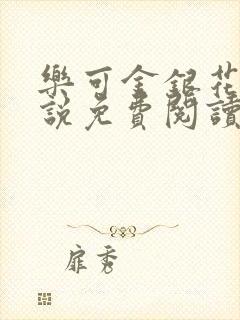 樂可金銀花
說免費閱讀
扉秀